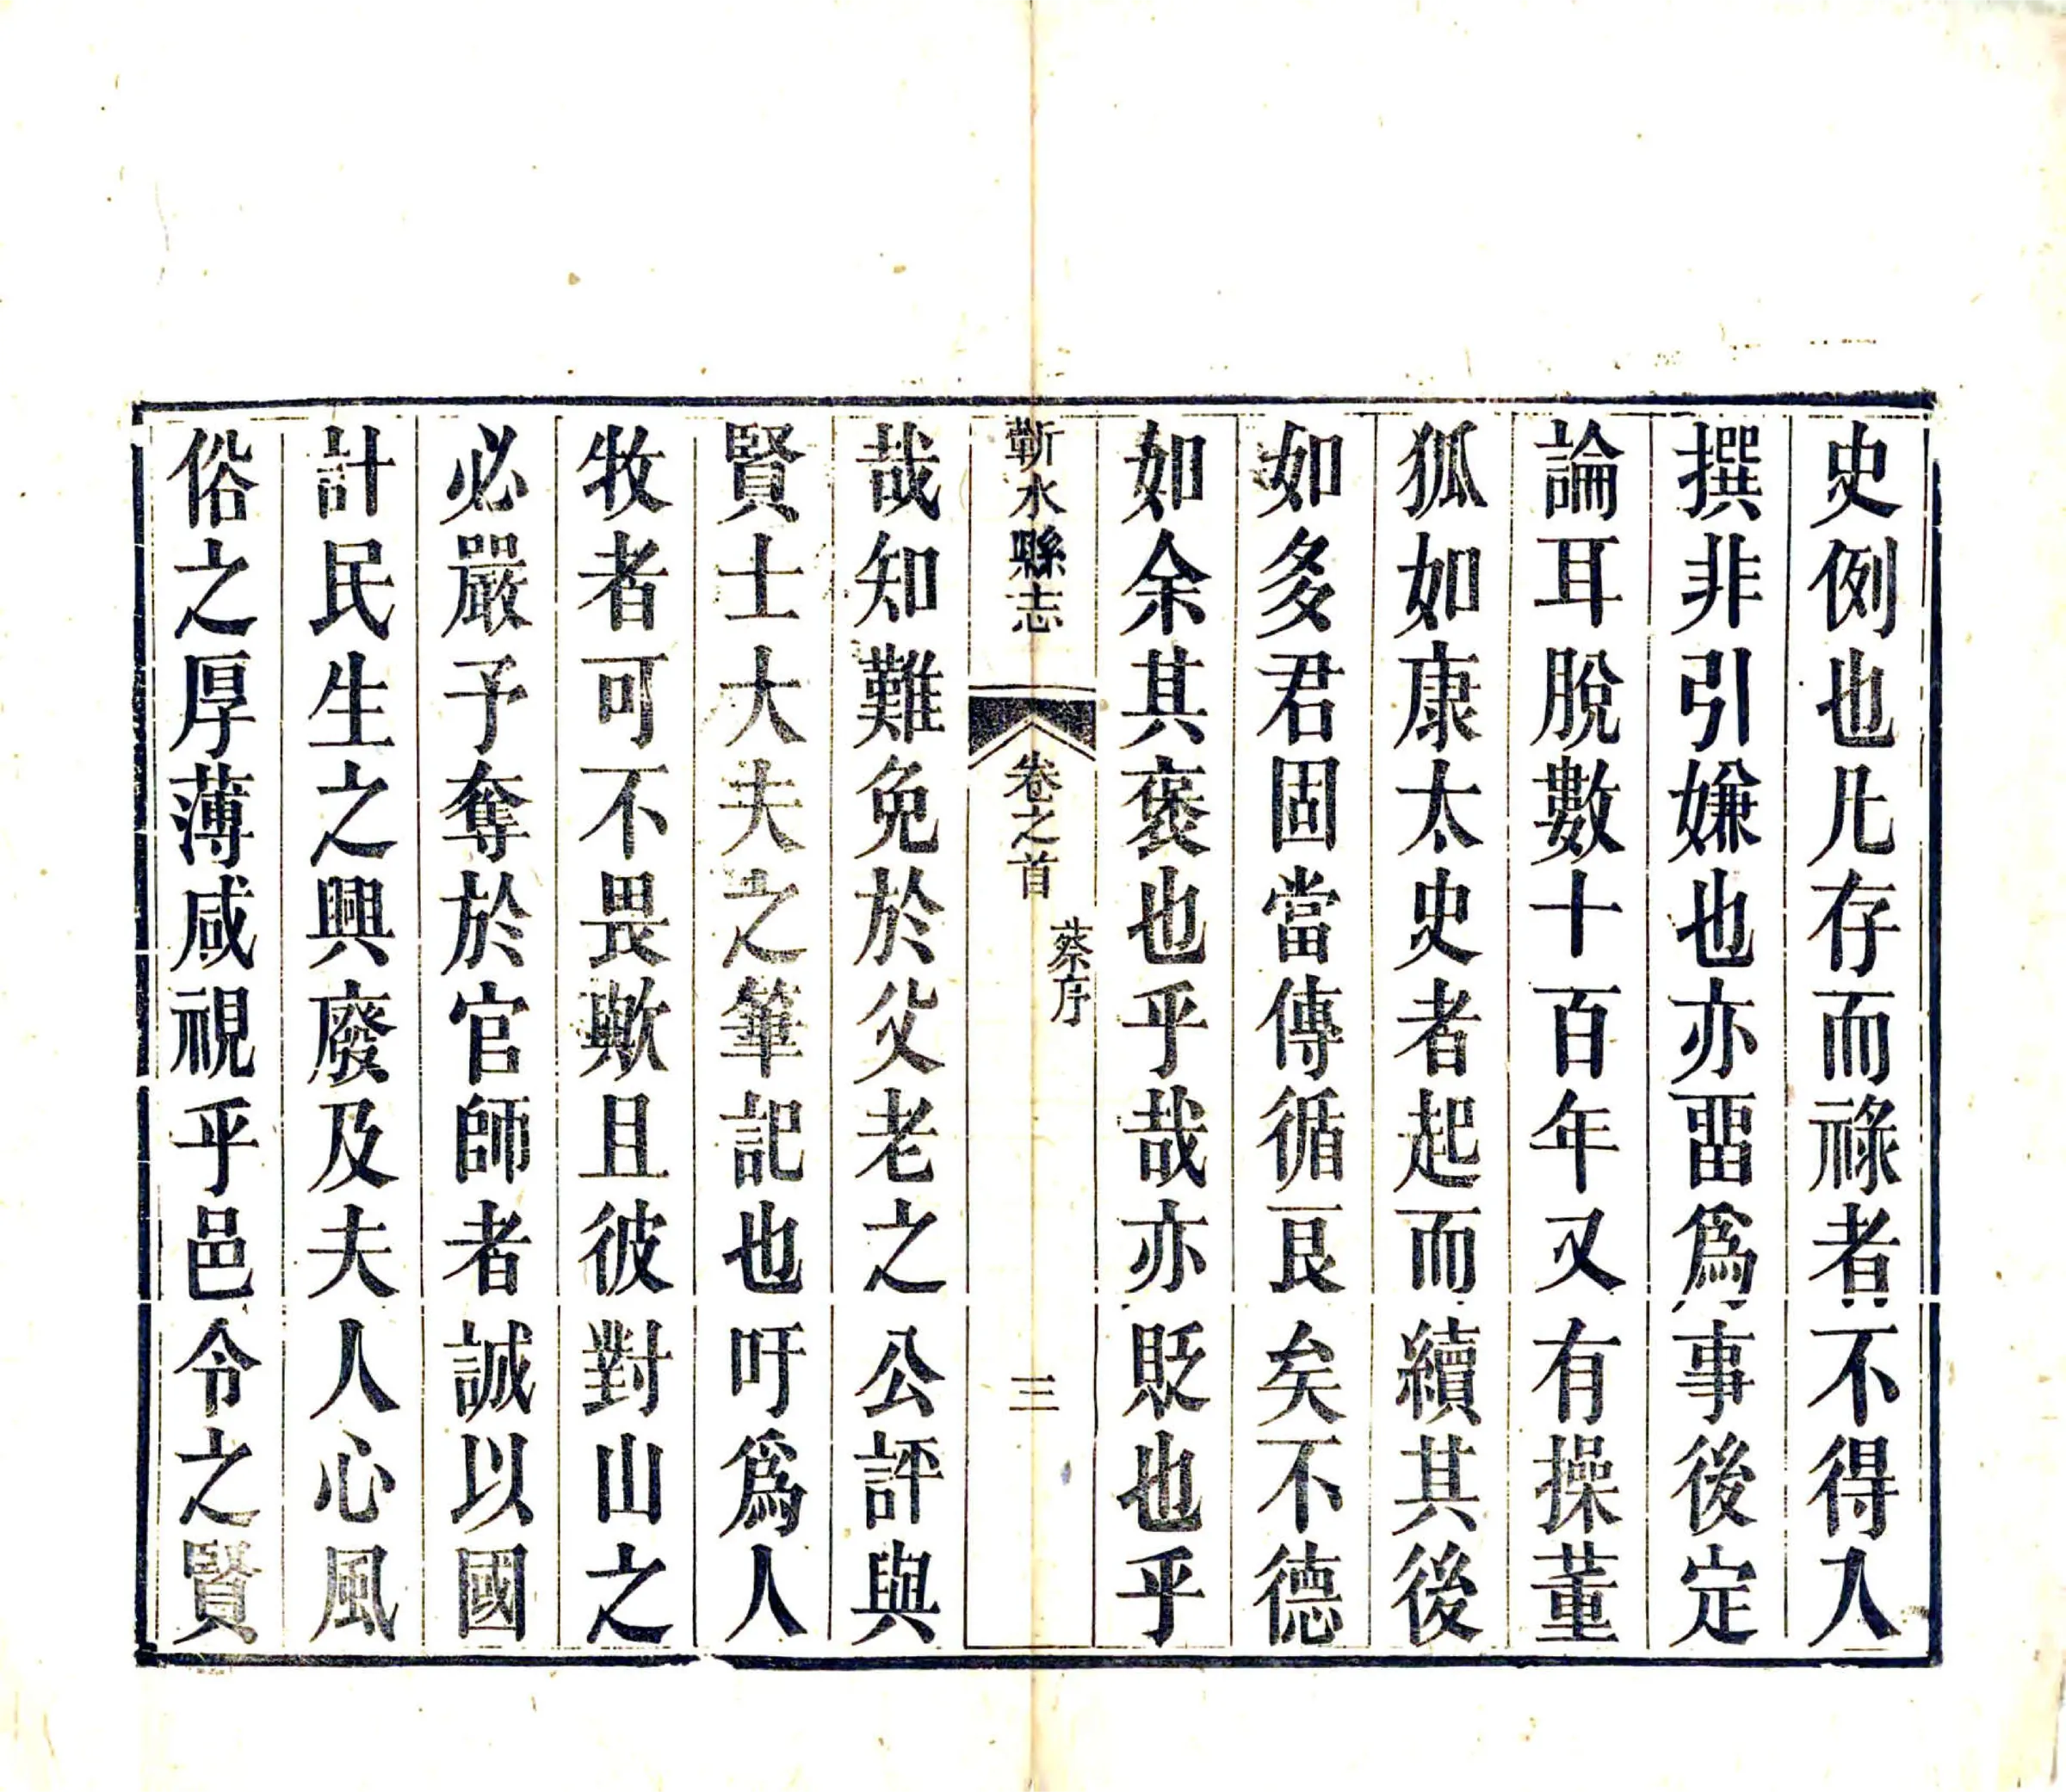 史例也凡存而祿者不得入
撰非引嫌也亦畱爲事後定
論耳脫數十百年又有操董
狐如康太史者起而續其後
如多君固當傳循良矣不德
如余其褒也乎哉亦貶也乎
蘄水縣志
卷之首
蔡序
三
哉知難免於父老之公評與
賢士大夫之筆記也吁爲人
牧者可不畏歟且彼對山之
必嚴予奪於官師者誠以國
計民生之興廢及夫人心風
俗之厚薄咸視乎邑令之賢